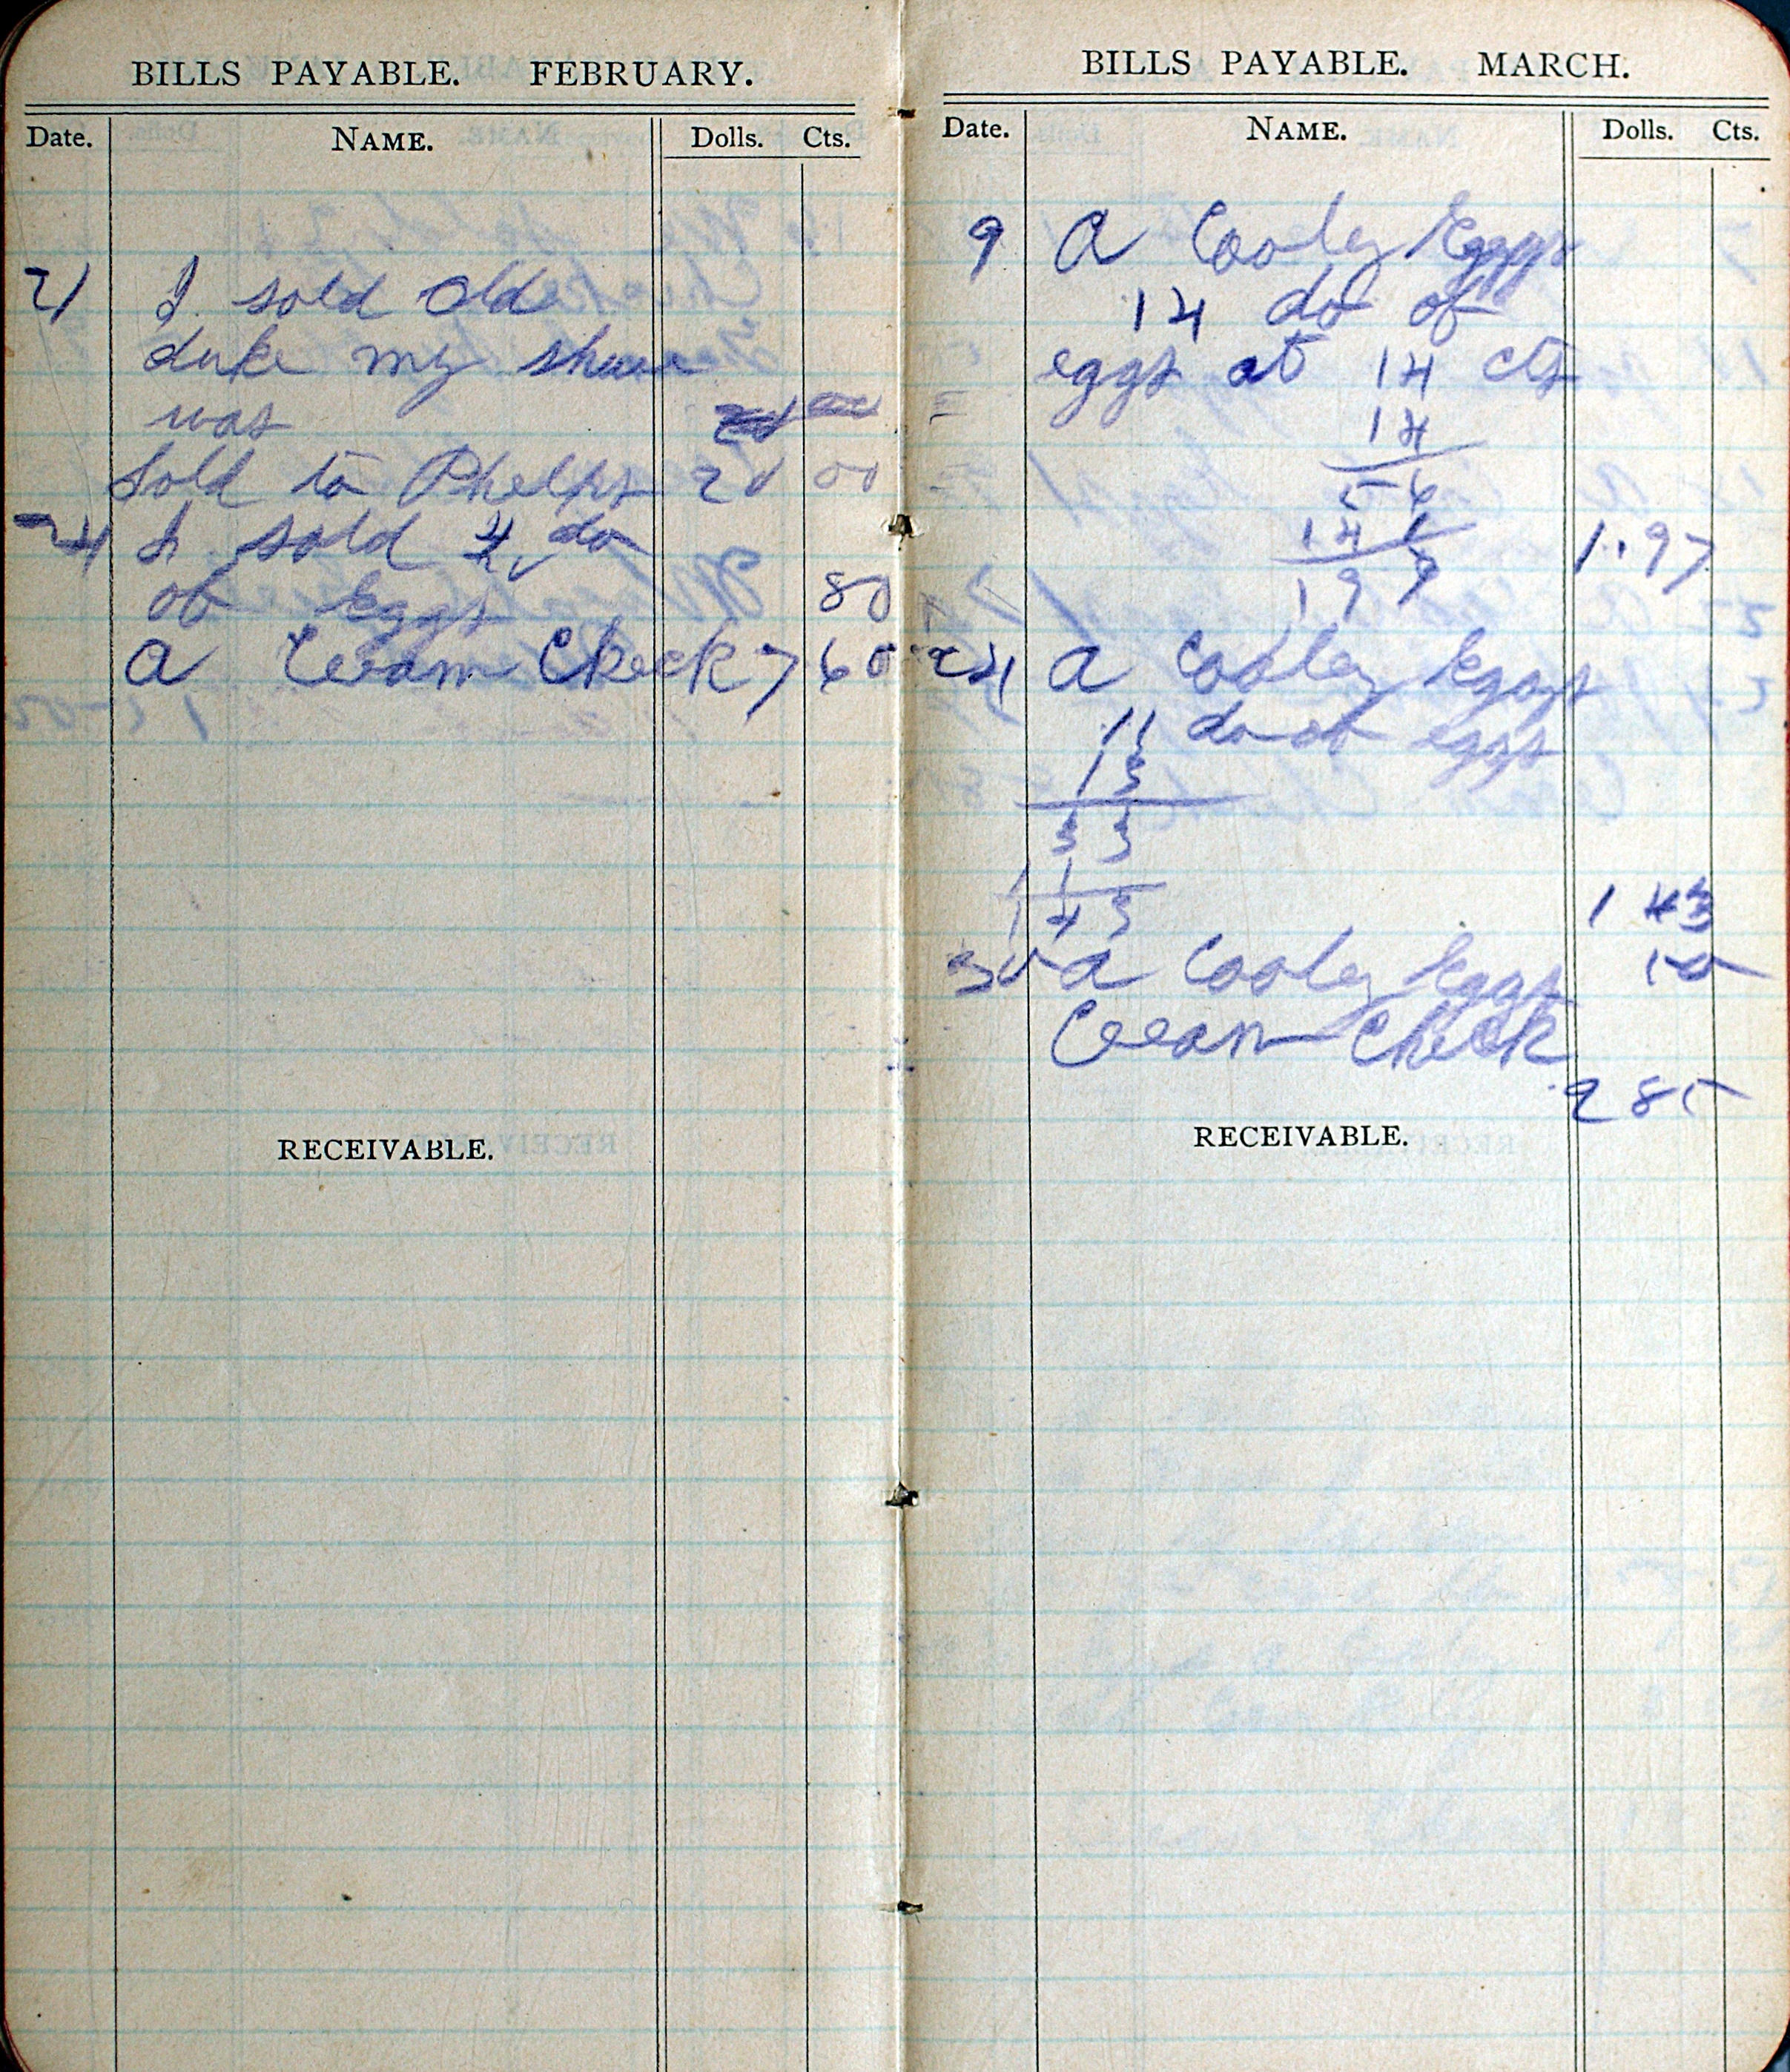 BILLS PAYABLE. FEBRUARY.
Date. NAME. Dolls. Cts.
21 I sold Old
duke my share
was
Sold to Phelps 20 00
24 I sold 4 do
of Eggs 80
a Cream Check 7 60
RECEIVABLE.
BILLS PAYABLE. MARCH.
Date. NAME. Dolls. Cts.
9 A Cooley Eggs
14 do of
eggs at 14 cts
14
56
14 1
19 7 1.97
24 A Cooley Eggs
11 do of eggs
13
33
11
143 1 43
30 A Cooley Eggs 15
Cream Check
9 85
RECEIVABLE.